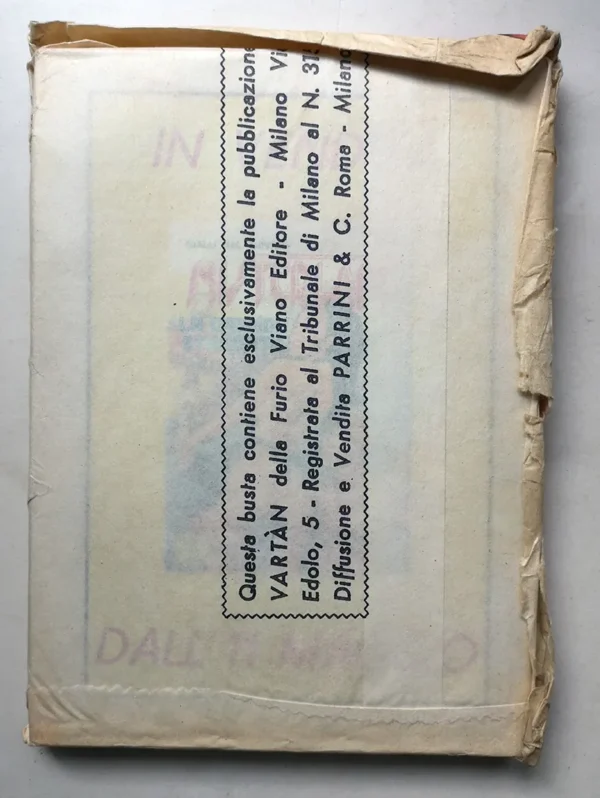 Questa busta contiene esclusivamente la pubblicazione
VARTÀN della Furio Viano Editore - Milano Vi
Edolo, 5 - Registrata al Tribunale di Milano al N. 31
Diffusione e Vendita PARRINI & C. Roma - Milano
IN
DALL'